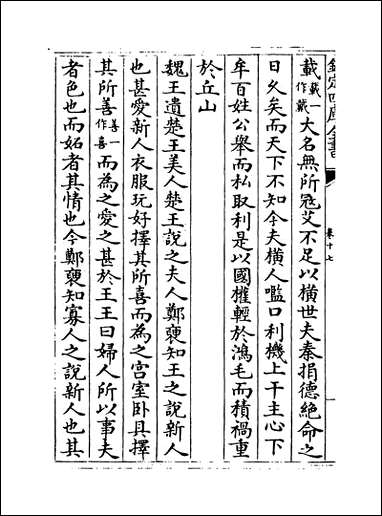 欽定四庫全書
卷十七
載載一作戴大名無所冦艾不足以橫世夫秦捐德絕命之
日久矣而天下不知今夫橫人㘔口利機上干主心下
牟百姓公舉而私取利是以國權輕於鴻毛而積禍重
於丘山
魏王遺楚王美人楚王說之夫人鄭襃知王之說新人
也甚愛新人衣服玩好擇其所喜而為之宮室卧具擇
其所善善一作喜而為之愛之甚於王王曰婦人所以事夫
者色也而妬者其情也今鄭襃知寡人之說新人也其